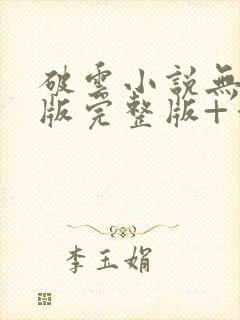 破雲小說無
版完整版+
李玉娟